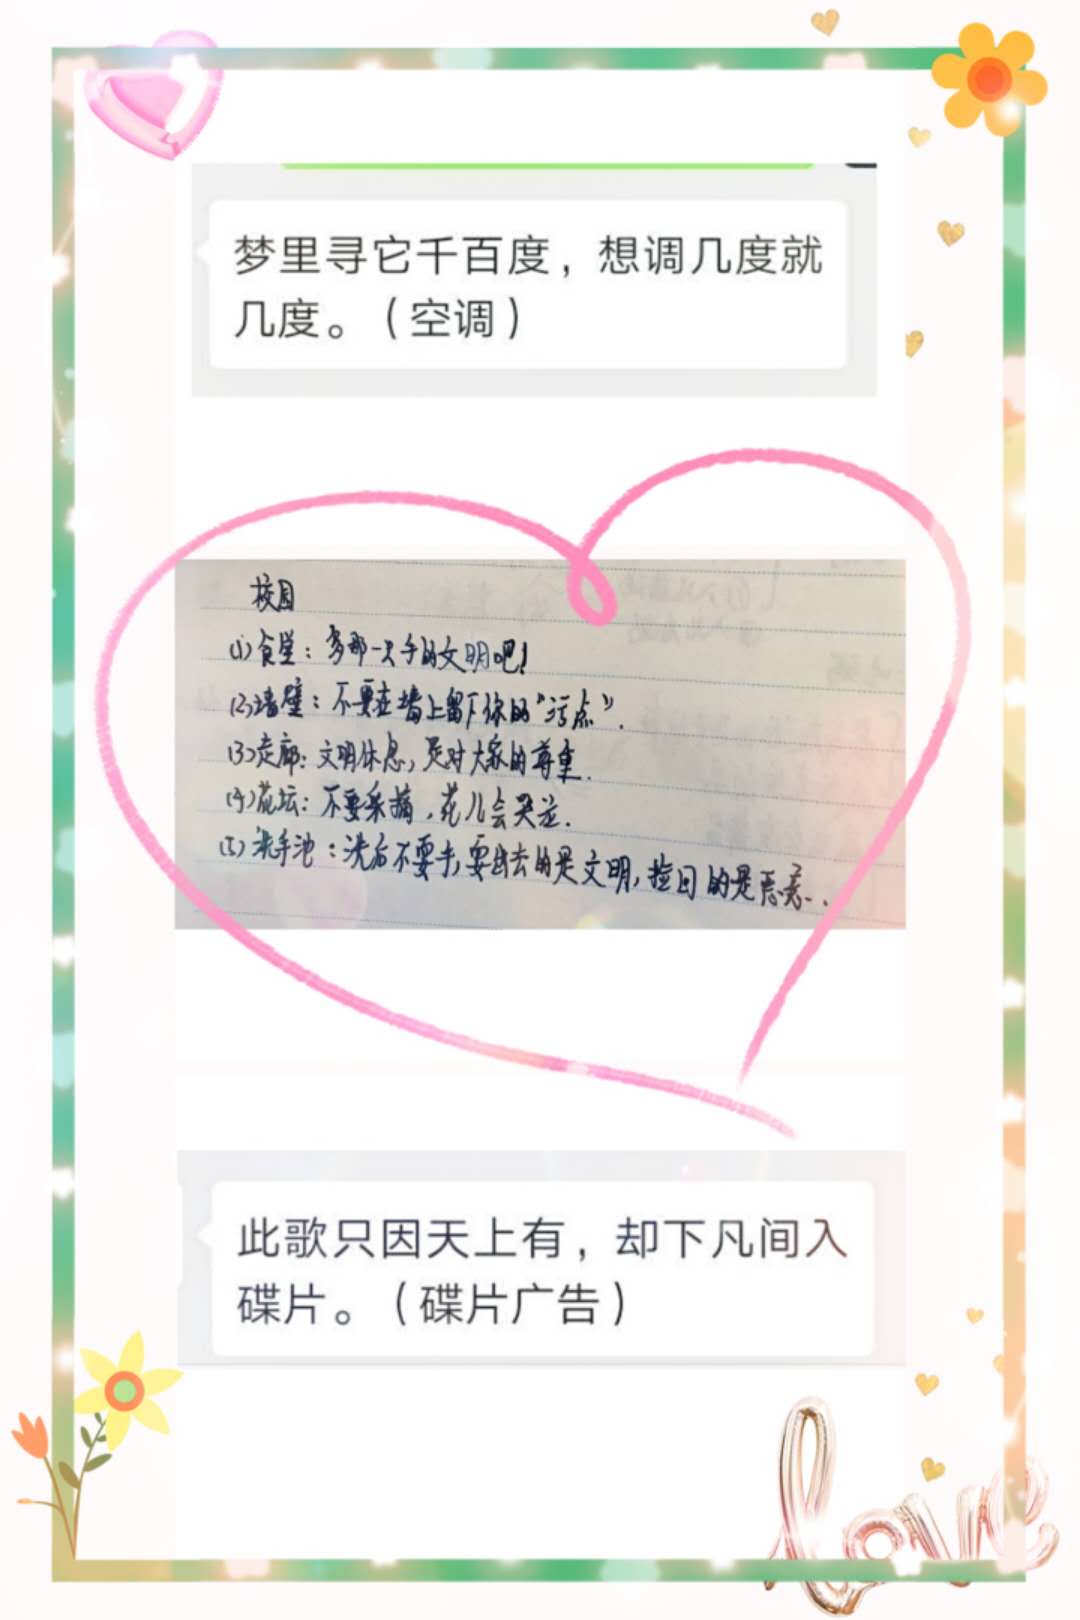 梦里寻它千百度，想调几度就
几度。（空调）
校园
(1)食堂：多那一只手的文明吧！
(2)墙壁：不要在墙上留下你的“污点”.
(3)走廊：文明休息，是对大家的尊重.
(4)花坛：不要采摘，花儿会哭泣.
(5)洗手池：洗后不要手，要出去的是文明，捡回的是恶意..
此歌只因天上有，却下凡间入
碟片。（碟片广告）
love